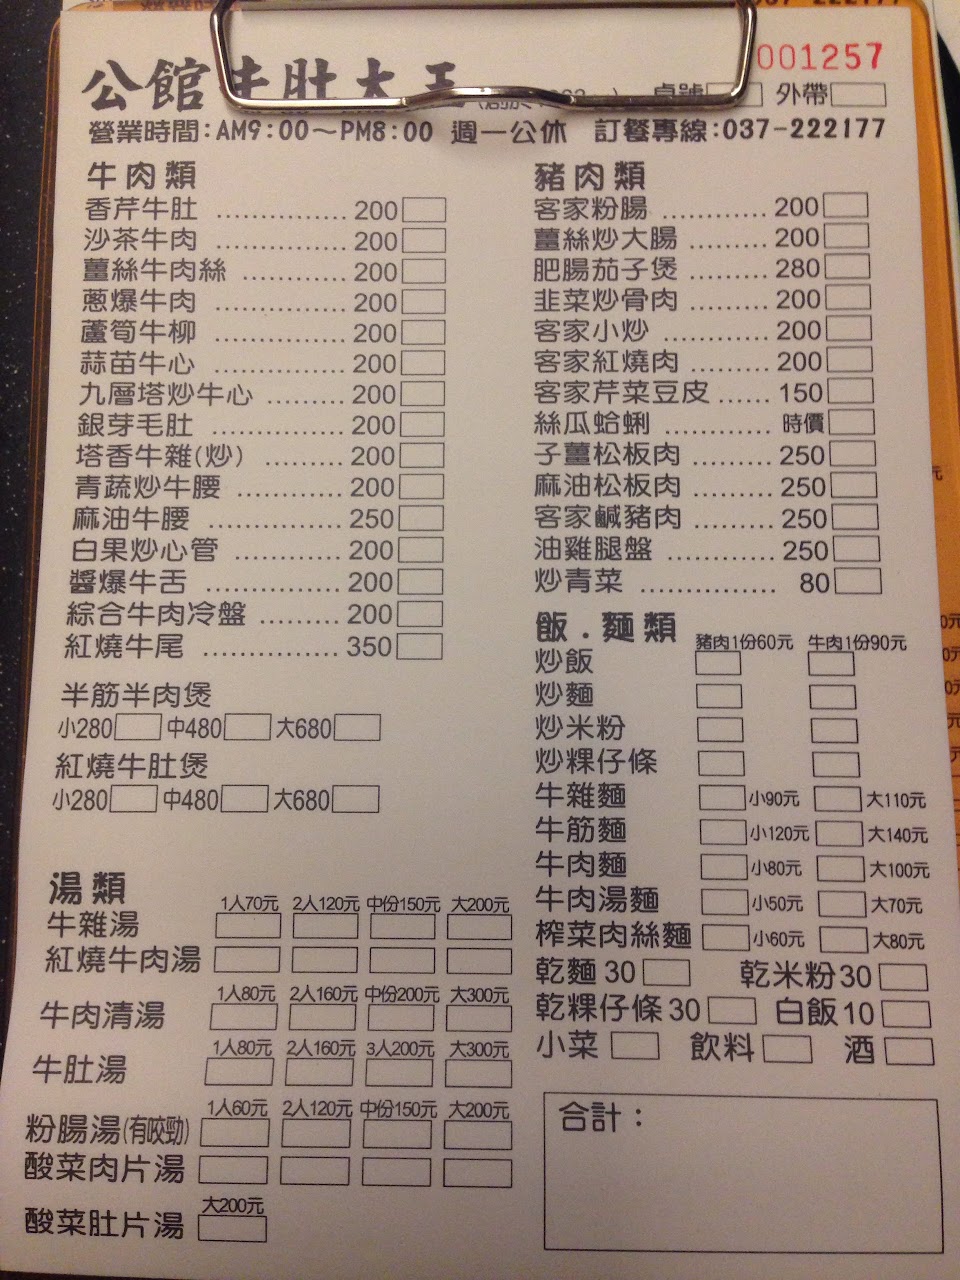 001257
公館牛肚大王
桌號 外帶
營業時間:AM9:00～PM8:00 週一公休 訂餐專線:037-222177
牛肉類
香芹牛肚 ............... 200
沙茶牛肉 ............... 200
薑絲牛肉絲 ............ 200
蔥爆牛肉 ............... 200
蘆筍牛柳 ............... 200
蒜苗牛心 ............... 200
九層塔炒牛心 ......... 200
銀芽毛肚 ............... 200
塔香牛雜(炒) ......... 200
青蔬炒牛腰 ............ 200
麻油牛腰 ............... 250
白果炒心管 ............ 200
醬爆牛舌 ............... 200
綜合牛肉冷盤 ......... 200
紅燒牛尾 ............... 350
半筋半肉煲
小280 中480 大680
紅燒牛肚煲
小280 中480 大680
湯類
1人70元 2人120元 中份150元 大200元
牛雜湯
紅燒牛肉湯
1人80元 2人160元 中份200元 大300元
牛肉清湯
1人80元 2人160元 3人200元 大300元
牛肚湯
1人60元 2人120元 中份150元 大200元
粉腸湯(有咬勁)
酸菜肉片湯
大200元
酸菜肚片湯
豬肉類
客家粉腸 ............ 200
薑絲炒大腸 ......... 200
肥腸茄子煲 ......... 280
韭菜炒骨肉 ......... 200
客家小炒 ............ 200
客家紅燒肉 ......... 200
客家芹菜豆皮 ...... 150
絲瓜蛤蜊 ............ 時價
子薑松板肉 ......... 250
麻油松板肉 ......... 250
客家鹹豬肉 ......... 250
油雞腿盤 ............ 250
炒青菜 ............... 80
飯.麵類 豬肉1份60元 牛肉1份90元
炒飯
炒麵
炒米粉
炒粿仔條
牛雜麵 小90元 大110元
牛筋麵 小120元 大140元
牛肉麵 小80元 大100元
牛肉湯麵 小50元 大70元
榨菜肉絲麵 小60元 大80元
乾麵30 乾米粉30
乾粿仔條30 白飯10
小菜 飲料 酒
合計：